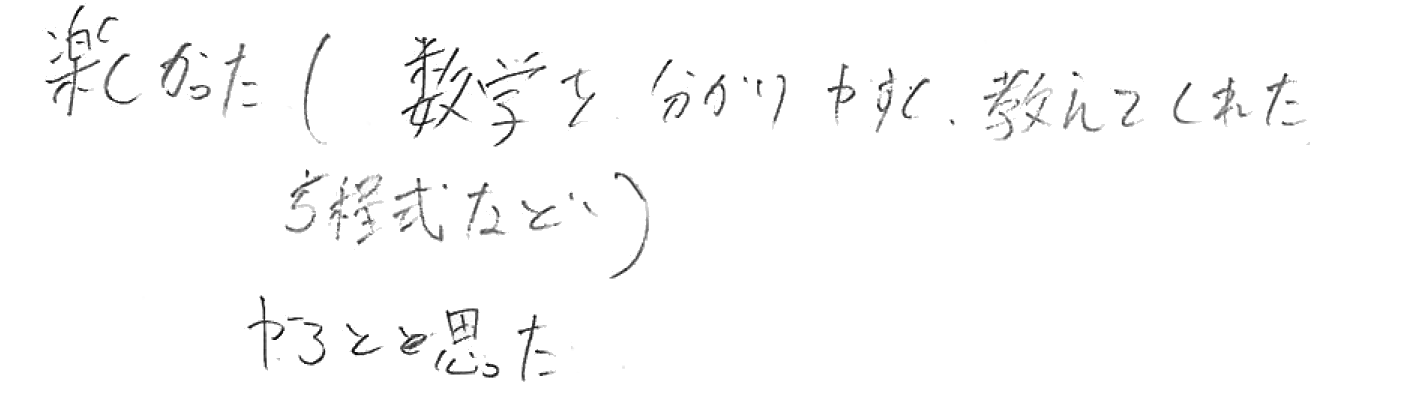 楽しかった(数学を分かりやすく、教えてくれた
方程式など)
やると思った